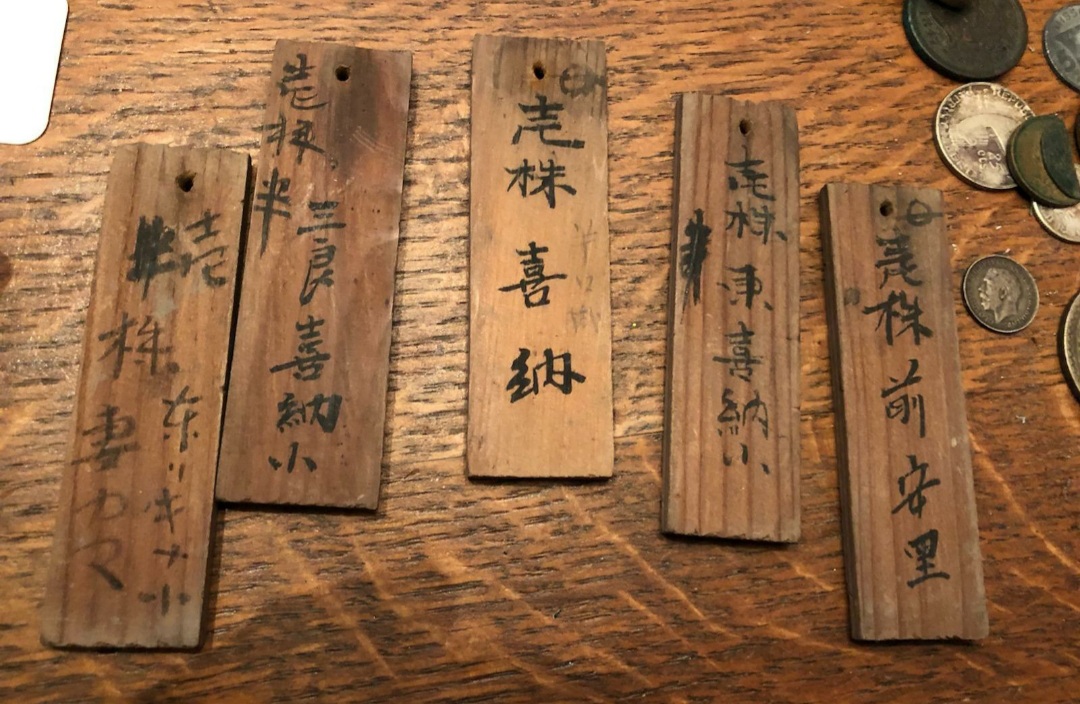 壱株
半
妻カマ
キナ小
壱株
半
三良喜納小
壱株
喜納
壱株
半
東喜納小
壱株
前安里